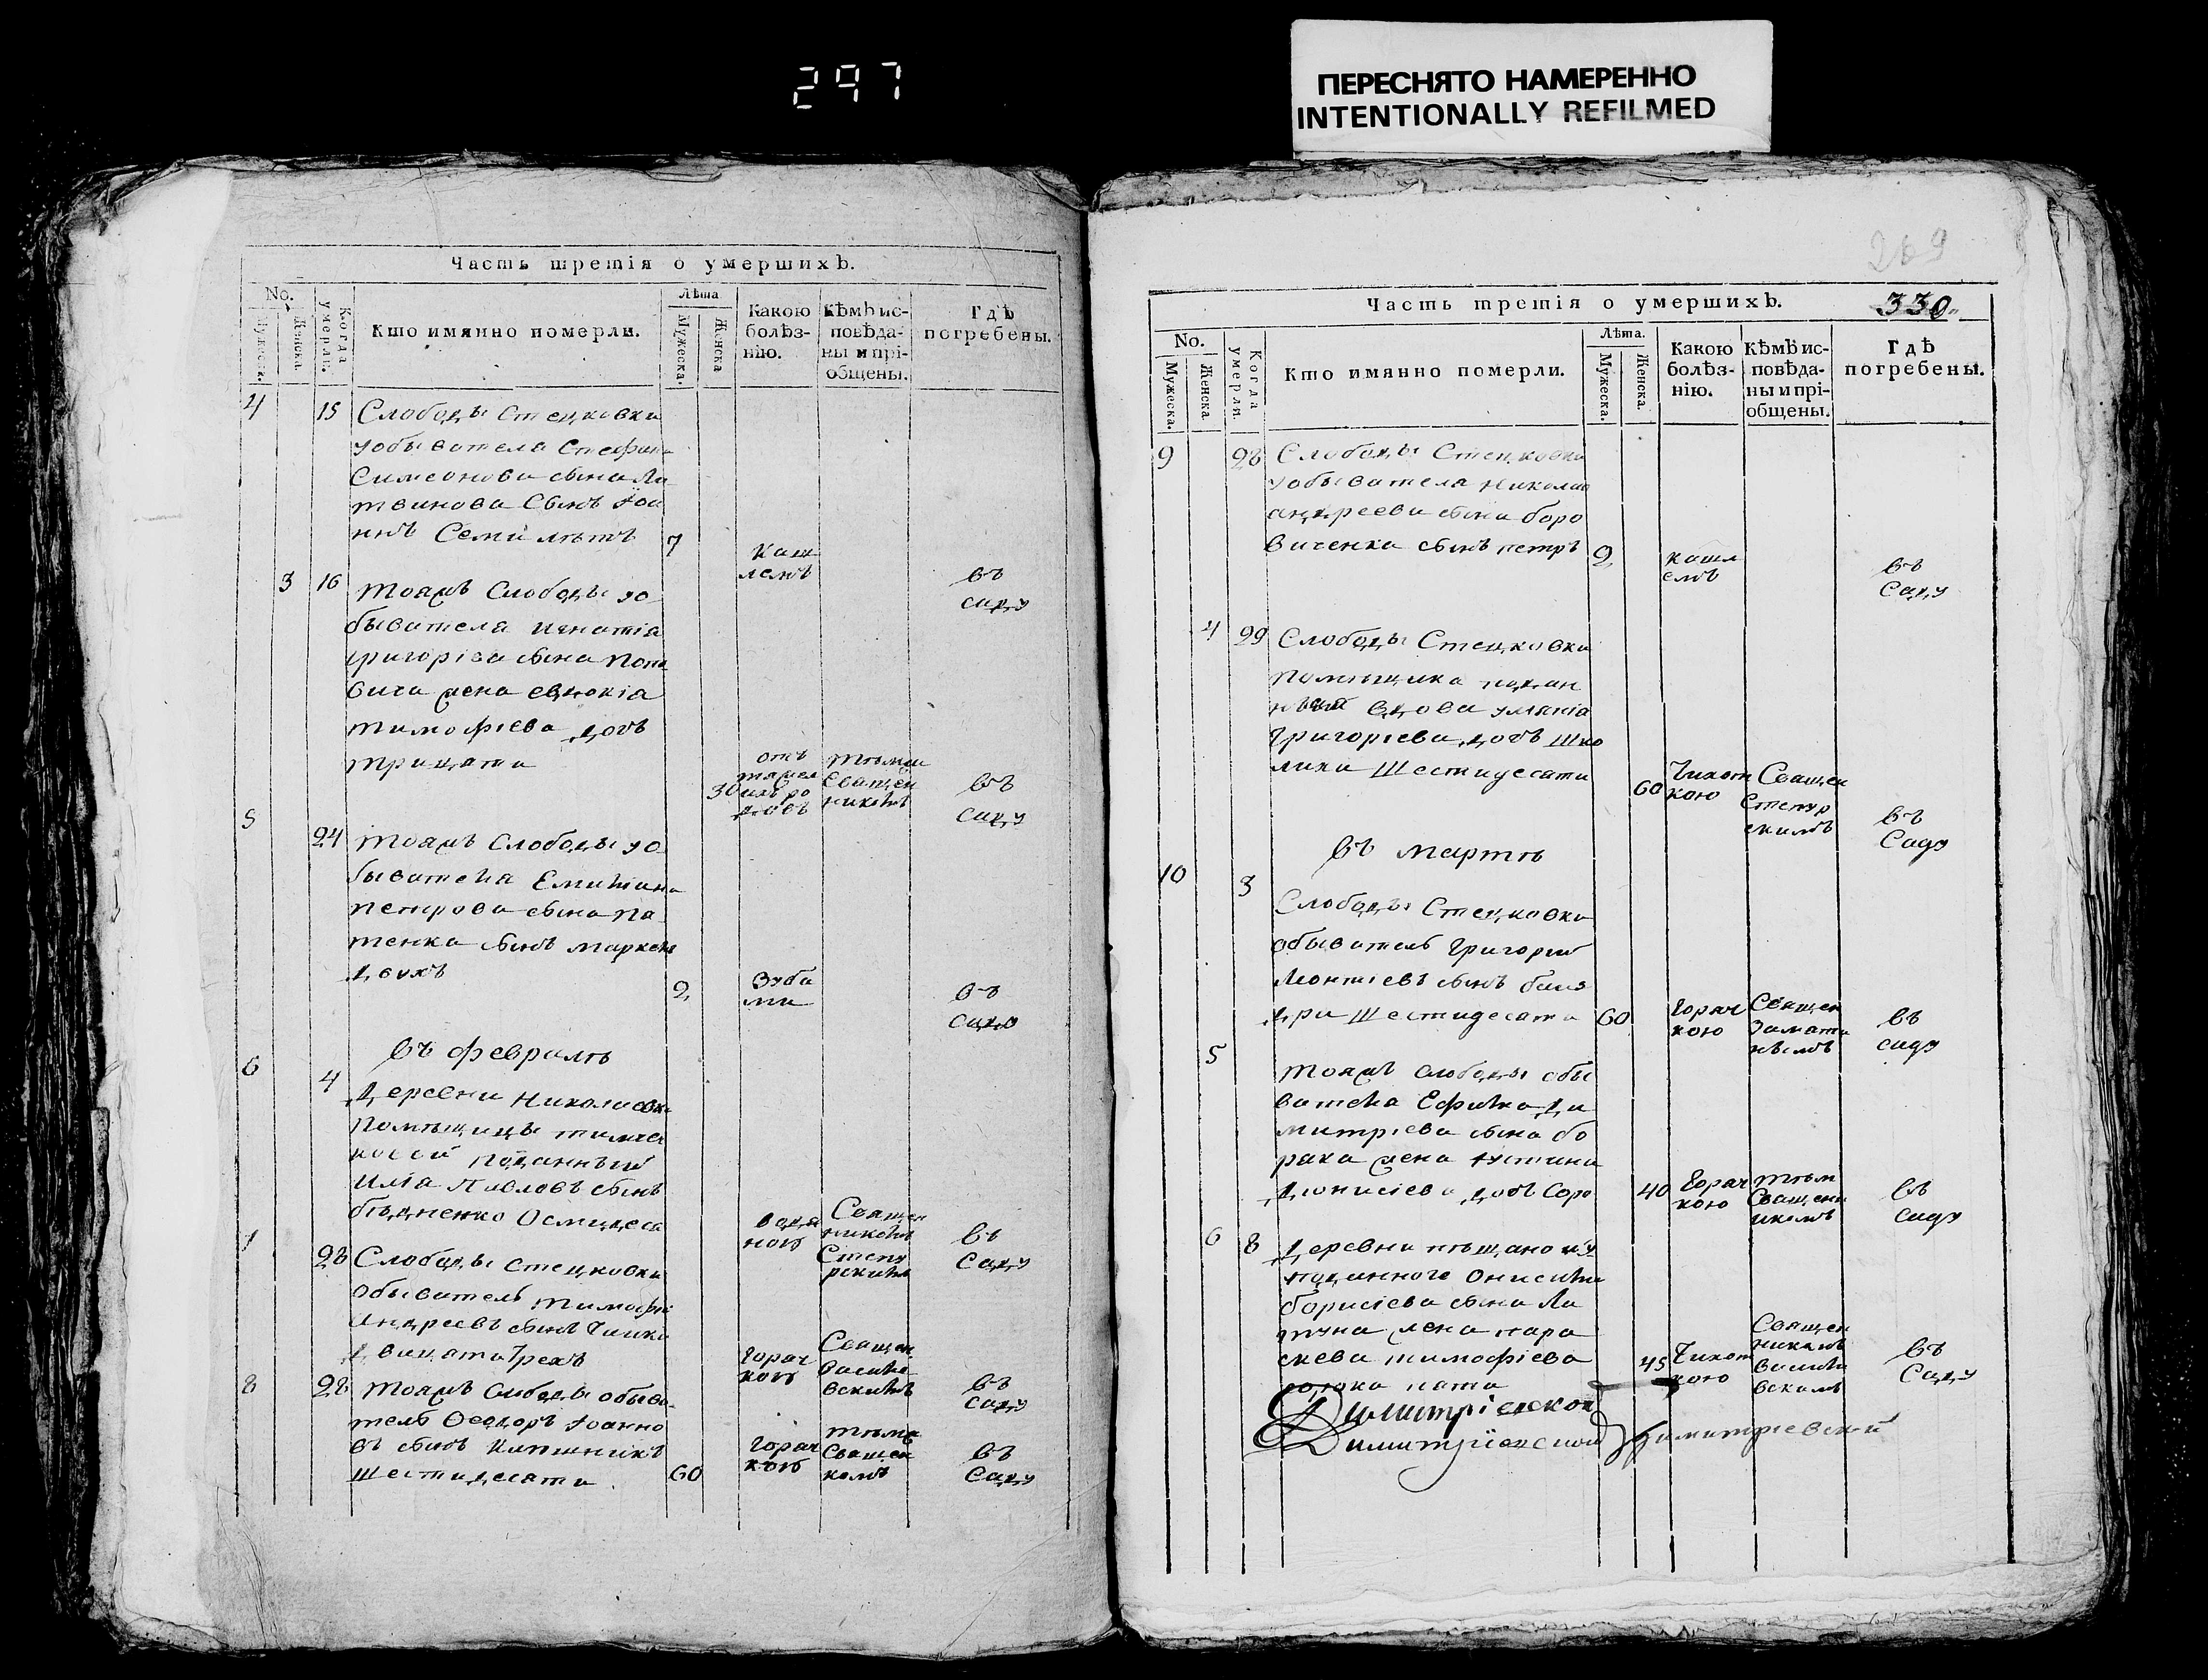 297
ПЕРЕСНЯТО НАМЕРЕННО
INTENTIONALLY REFILMED
Часть третія о умершихъ.
No.
Мужеска.
Женска.
Когда умерли.
Кто имянно померли.
Лѣта
Мужеска.
Женска
Какою болѣз-
нію.
Кѣмъ ис-
повѣда-
ны и прі-
общены.
Гдѣ
погребены.
4 15 Слободы Стецковки
уобывателя Стефана
Симеонова сына Ли
твинова Сынъ Іоа
ннъ Семи лѣтъ 7
Каш
лемъ
въ
саду
3 16 тояжъ Слободы уо
бывателя игнатія
григоріва сына Попо
вича жена евдокіа
тимофіева дочь
трицати 30
отъ
тяжел
ихъ ро
довъ
тѣмже
Священ
никомъ
въ
саду
5 24 тояжъ Слободы уо
бывателя Емилиана
петрова сына
тенка сынъ
двухъ 2
Зуба
ми
въ
саду
въ февралѣ
6 4 деревни Николаевки
Помѣщицы
подданный
илія Павловъ сынъ
Осмидеся
водя
ною
Священ
никомъ
въ
Саду
7 28 Слободы Стецковки
обыватель тимофей
андреевъ сынъ
двицати трехъ
горяч
кою
Священ
въ
саду
8 28 тояжъ Слободы обыва
тель Феодоръ Іоанно
въ сынъ
шестидесяти 60
горяч
кою
тѣмъ
Священ
комъ
въ
Саду
269
Часть третія о умершихъ. 330.
No.
Мужеска.
Женска.
Когда умерли.
Кто имянно померли.
Лѣта.
Мужеска.
Женска.
Какою
болѣз-
нію.
Кѣмъ ис-
повѣда-
ны и прі-
общены.
Гдѣ
погребены.
9 28 Слободы Стецковки
уобывателя Николая
андреева сына боро
виченка сынъ петръ 2
кашл
емъ
въ
Саду
4 29 Слободы Стецковки
помѣщика поддан
вдова
Григориева дочь Шко
Шестидесяти 60
Чихот
кою
Священ
въ
Саду
въ мартѣ
10 3
Слободы Стецковки
обыватель Григорий
Леонтіевъ сынъ
Шестидесяти 60
Горяч
кою
Священ
въ
саду
5
тояжъ слободы обы
вателя Ефима ди
митрієва сына бо
рака жена Іустина
дионисієва дочь Соро 40
Горяч
кою
тѣм
Священ
икомъ
въ
саду
6 8 деревни
подданного
борисієва сына Ла
жена пара
скева тимофієва
45
Чихот
кою
Священ
никомъ
въ
Саду
Димитріевской
Димитріевской Димитріевской